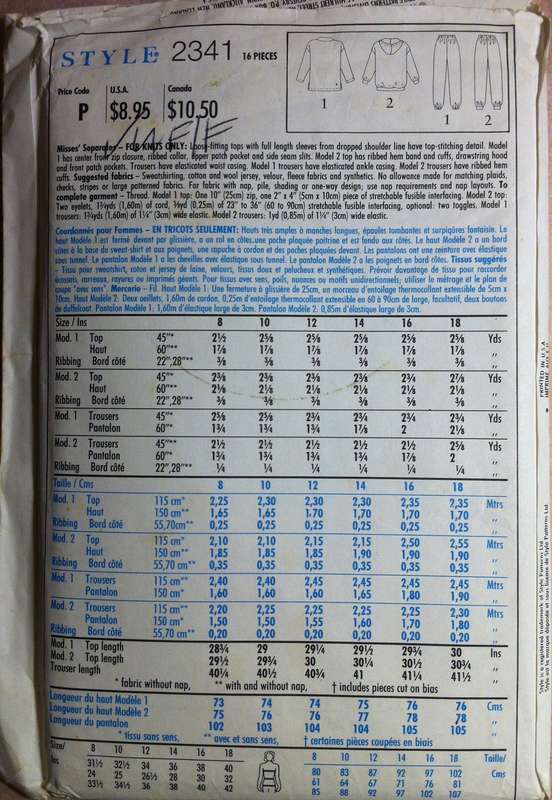 STYLE 2341 16 PIECES
Price Code U.S.A. Canada
P $8.95 $10.50
1 2 1 2
Misses' Separates – FOR KNITS ONLY: Loose-fitting tops with full length sleeves from dropped shoulder line have top-stitching detail. Model
1 has center front zip closure, ribbed collar, upper patch pocket and side seam slits. Model 2 top has ribbed hem band and cuffs, drawstring hood
and front patch pockets. Trousers have elasticated waist casing. Model 1 trousers have elasticated ankle casing. Model 2 trousers have ribbed hem
cuffs. Suggested fabrics – Sweatshirting, cotton and wool jersey, velour, fleece fabrics and synthetics. No allowance made for matching plaids,
checks, stripes or large patterned fabrics. For fabric with nap, pile, shading or one-way design; use nap requirements and nap layouts. To
complete garment – Thread. Model 1 top: One 10" (25cm) zip, one 2" x 4" (5cm x 10cm) piece of stretchable fusible interfacing. Model 2 top:
Two eyelets, 1¾yds (1,60m) of cord, ⅜yd (0,25m) of 23" to 36" (60 to 90cm) stretchable fusible interfacing, optional: two toggles. Model 1
trousers: 1¾yds (1,60m) of 1¼" (3cm) wide elastic. Model 2 trousers: 1yd (0,85m) of 1¼" (3cm) wide elastic.
Coordonnés pour Femmes – EN TRICOTS SEULEMENT: Hauts très amples à manches longues, épaules tombantes et surpiqûres fantaisie. Le
haut Modèle 1 est fermé devant par glissière, a un col en côtes, une poche plaquée poitrine et est fendu aux côtés. Le haut Modèle 2 a un bord
côtes à la base du sweat-shirt et aux poignets, une capuche à cordon et des poches plaquées devant. Les pantalons ont une ceinture avec élastique
sous tunnel. Le pantalon Modèle 1 a les chevilles avec élastique sous tunnel. Le pantalon Modèle 2 a les poignets en bord côtes. Tissus suggérés
– Tissu pour sweatshirt, coton et jersey de laine, velours, tissus doux et pelucheux et synthétiques. Prévoir davantage de tissu pour raccorder
écossais, carreaux, rayures ou imprimés géants. Pour tissus avec sens, poils, nuances ou motifs unidirectionnels; utiliser le métrage et le plan de
coupe "avec sens". Mercerie – Fil. Haut Modèle 1: Une fermeture à glissière de 25cm, un morceau d'entoilage thermocollant extensible de 5cm x
10cm. Haut Modèle 2: Deux oeillets, 1,60m de cordon, 0,25m d'entoilage thermocollant extensible en 60 à 90cm de large, facultatif, deux boutons
de duffelcoat. Pantalon Modèle 1: 1,60m d'élastique large de 3cm. Pantalon Modèle 2: 0,85m d'élastique large de 3cm.
Size / Ins 8 10 12 14 16 18
Mod. 1 Top 45"* 2½ 2⅝ 2⅝ 2⅝ 2⅝ 2⅝ Yds
Haut 60"** 1⅞ 1⅞ 1⅞ 1⅞ 1⅞ 1⅞ ,,
Ribbing Bord côté 22",28"** ⅜ ⅜ ⅜ ⅜ ⅜ ⅜ ,,
Mod. 2 Top 45"** 2⅜ 2⅜ 2⅜ 2⅜ 2¾ 2⅞ Yds
Haut 60"** 2⅛ 2⅛ 2⅛ 2⅛ 2⅛ 2⅛ ,,
Ribbing Bord côté 22",28"** ⅜ ⅜ ⅜ ⅜ ⅜ ⅜ ,,
Mod. 1 Trousers 45"* 2⅝ 2⅝ 2¾ 2¾ 2¾ 2¾ Yds
Pantalon 60"* 1¾ 1¾ 1¾ 1⅞ 2 2⅛ ,,
Mod. 2 Trousers 45"** 2½ 2½ 2½ 2½ 2½ 2⅝ Yds
Pantalon 60"* 1¾ 1¾ 1¾ 1⅞ 1⅞ 2 ,,
Ribbing Bord côté 22",28"** ¼ ¼ ¼ ¼ ¼ ¼ ,,
Taille / Cms 8 10 12 14 16 18
Mod. 1 Top 115 cm* 2,25 2,30 2,30 2,30 2,35 2,35 Mtrs
Haut 150 cm** 1,65 1,65 1,70 1,70 1,70 1,70 ,,
Ribbing Bord côté 55,70cm** 0,25 0,25 0,25 0,25 0,25 0,25 ,,
Mod. 2 Top 115 cm* 2,10 2,10 2,15 2,15 2,50 2,55 Mtrs
Haut 150 cm** 1,85 1,85 1,85 1,90 1,90 1,90 ,,
Ribbing Bord côté 55,70 cm** 0,35 0,35 0,35 0,35 0,35 0,35 ,,
Mod. 1 Trousers 115 cm* 2,40 2,40 2,45 2,45 2,45 2,45 Mtrs
Pantalon 150 cm* 1,60 1,60 1,60 1,65 1,80 1,90 ,,
Mod. 2 Trousers 115 cm* 2,20 2,20 2,25 2,25 2,25 2,30 Mtrs
Pantalon 150 cm* 1,50 1,50 1,55 1,60 1,70 1,80 ,,
Ribbing Bord côté 55,70 cm** 0,20 0,20 0,20 0,20 0,20 0,20 ,,
Mod. 1 Top length 28¾ 29 29¼ 29½ 29¾ 30 Ins
Mod. 2 Top length 29½ 29¾ 30 30¼ 30½ 30¾ ,,
Trouser length 40¼ 40½ 40¾ 41 41¼ 41½ ,,
* fabric without nap, ** with and without nap, † includes pieces cut on bias
Longueur du haut Modèle 1 73 74 74 75 76 76 Cms
Longueur du haut Modèle 2 75 76 76 77 78 78 ,,
Longueur du pantalon 102 103 104 104 105 105 ,,
* tissu sans sens, ** avec et sans sens, † certaines pièces coupées en biais
Size/ 8 10 12 14 16 18 8 10 12 14 16 18 Taille/
Ins 31½ 32½ 34 36 38 40 80 83 87 92 97 102 Cms
24 25 26½ 28 30 32 61 64 67 71 76 81
33½ 34½ 36 38 40 42 85 88 92 97 102 107
PRINTED IN U.S.A.
Style is a registered trademark of Style Patterns Ltd